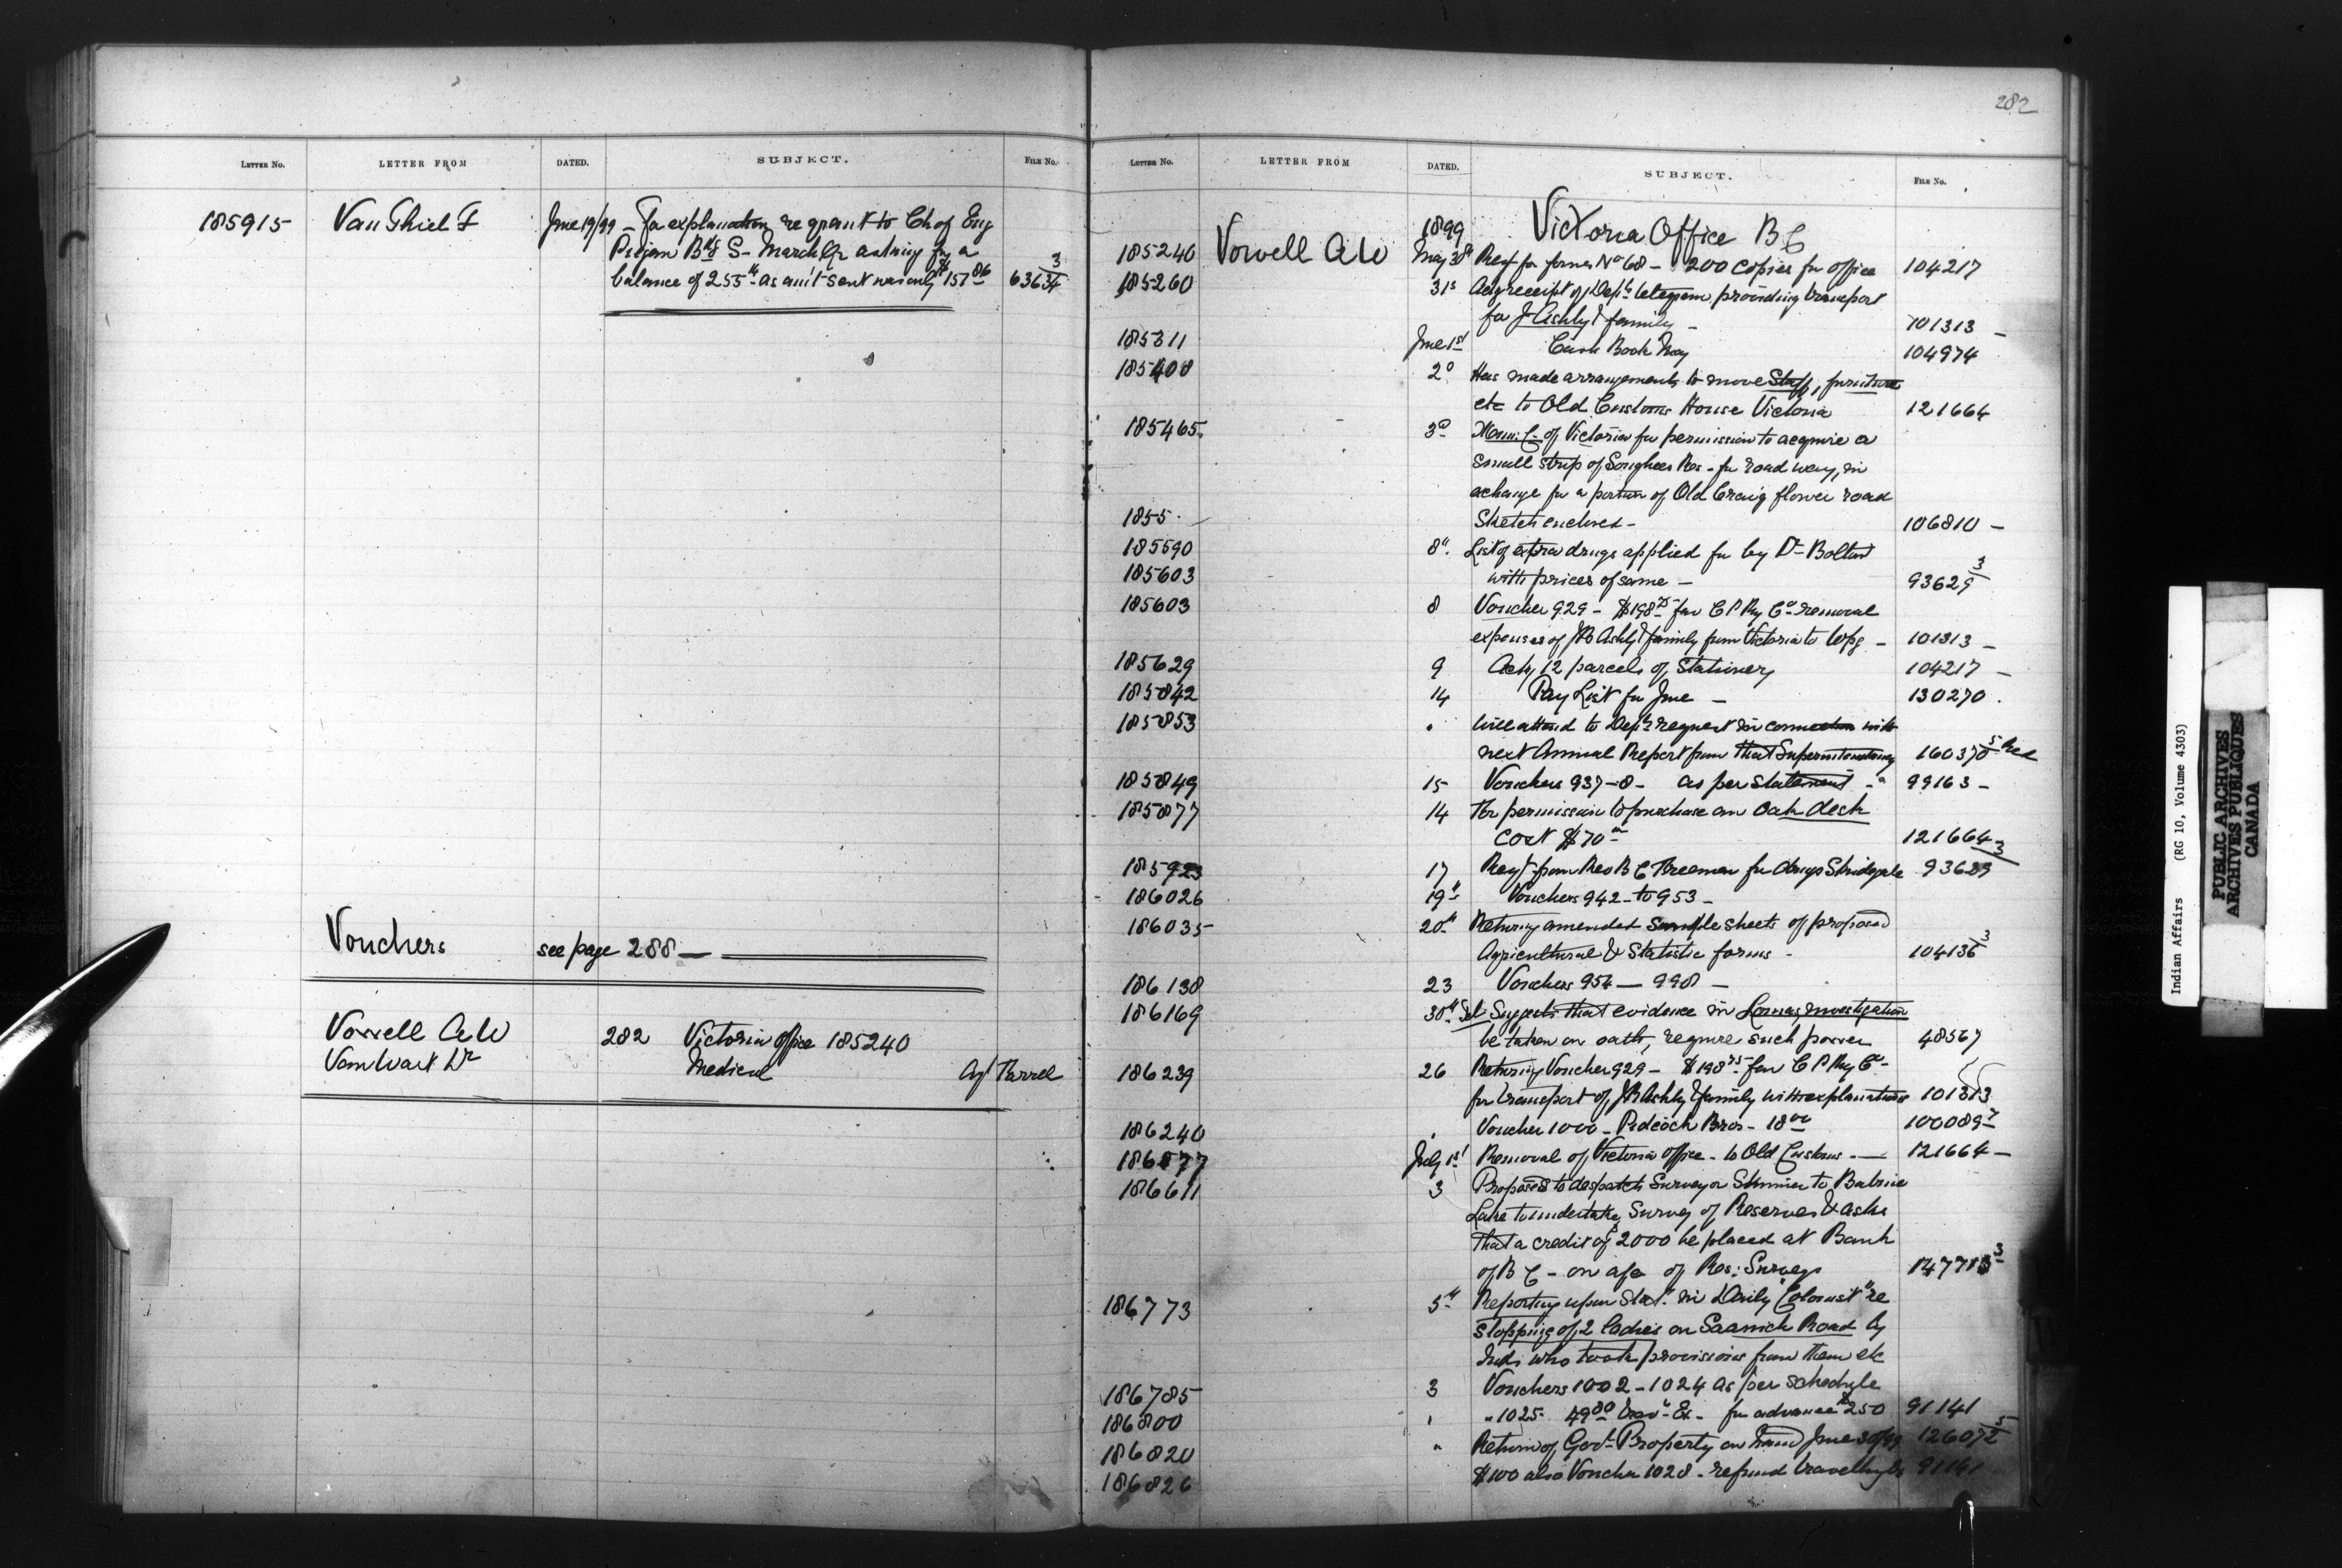 282
LETTER No. LETTER FROM DATED. SUBJECT. FILE No.
185915 Van Thiel F June 19/99 - For explanation re grant to Ch of Eng
Pigeon Bds S- March Qr asking for a
balance of 255 as amt sent was only $157 86 63634 3
Vouchers see page 288
Vowell A W 282 Victoria office 185240
VanWart Dr Medical
LETTER No. LETTER FROM DATED. SUBJECT. FILE No.
1899 Victoria Office B C
185240 Vowell A W May 30th Reqt for forms No 68 - 200 copies for office 104217
185260 31st Ackg receipt of Dept's telegram providing transport
for J Ashby & family - 101313 -
185311 June 1st Cash Book May 104974
185408 2d Has made arrangements to move Staff, furniture
etc to Old Customs House Victoria 121664
185465 3d Muni: C- of Victoria for permission to acquire a
small strip of Songhees Res - for road way, in
exchange for a portion of Old Craigflower road
1855 Sketch enclosed - 106810 -
185590 8th List of extra drugs applied for by Dr Bolton
185603 with prices of same - 93629 3
185603 8 Voucher 929 - $198 75 fav C P Ry Co removal
expenses of J B Ashby & family from Victoria to Wpg - 101313 -
185629 9 Ackg 12 parcels of Stationery 104217 -
185842 14 Pay List for June - 130270
185853 " Will attend to Dept's request in connection with
next Annual Report from that Superintendency 160370 5 Red
185849 15 Vouchers 937-8 - as per statement - 99163 -
185877 14 For permission to purchase an oak desk
cost $70 00 121664
185923 17 Reqt from Rev B C Freeman for drugs Skidegate 93629 3
186026 19th Vouchers 942 - to 953 -
186035 20th Returning amended sample sheets of proposed
Agricultural & Statistic forms - 104136 3
186138 23 Vouchers 954 — 998 -
186169 30th Suggests that evidence in Lomas investigation
be taken on oath, require such power 48567
186239 26 Returning Voucher 929 - $198 75 fav C P Ry Co-
for transport of J B Ashby & family with explanations 101313
186240 " Voucher 1000 - Pidcock Bros - 18 00 100089 7
186577 July 1st Removal of Victoria office - to Old Customs - 121664 -
186611 3 Proposes to despatch Surveyor Skinner to Babine
Lake to undertake Survey of Reserves & asks
that a credit of 2000 be placed at Bank
of B C - on a/c of Res: Surveys 147715 3
186773 5th Reporting upon Stat. in Daily "Colonist" re
stopping of 2 ladies on Saanich Road by
Inds who took provisions from them etc
186785 3 Vouchers 1002 - 1024 as per schedule
186800 " " 1025 - 49 80 Trav. Ex - for advance $250 91141
186820 " Return of Govt Property on hand June 30/99 126072 5
186826 $100 also Voucher 1028 - refund 91141
Indian Affairs (RG 10, Volume 4303)
PUBLIC ARCHIVES
ARCHIVES PUBLIQUES
CANADA